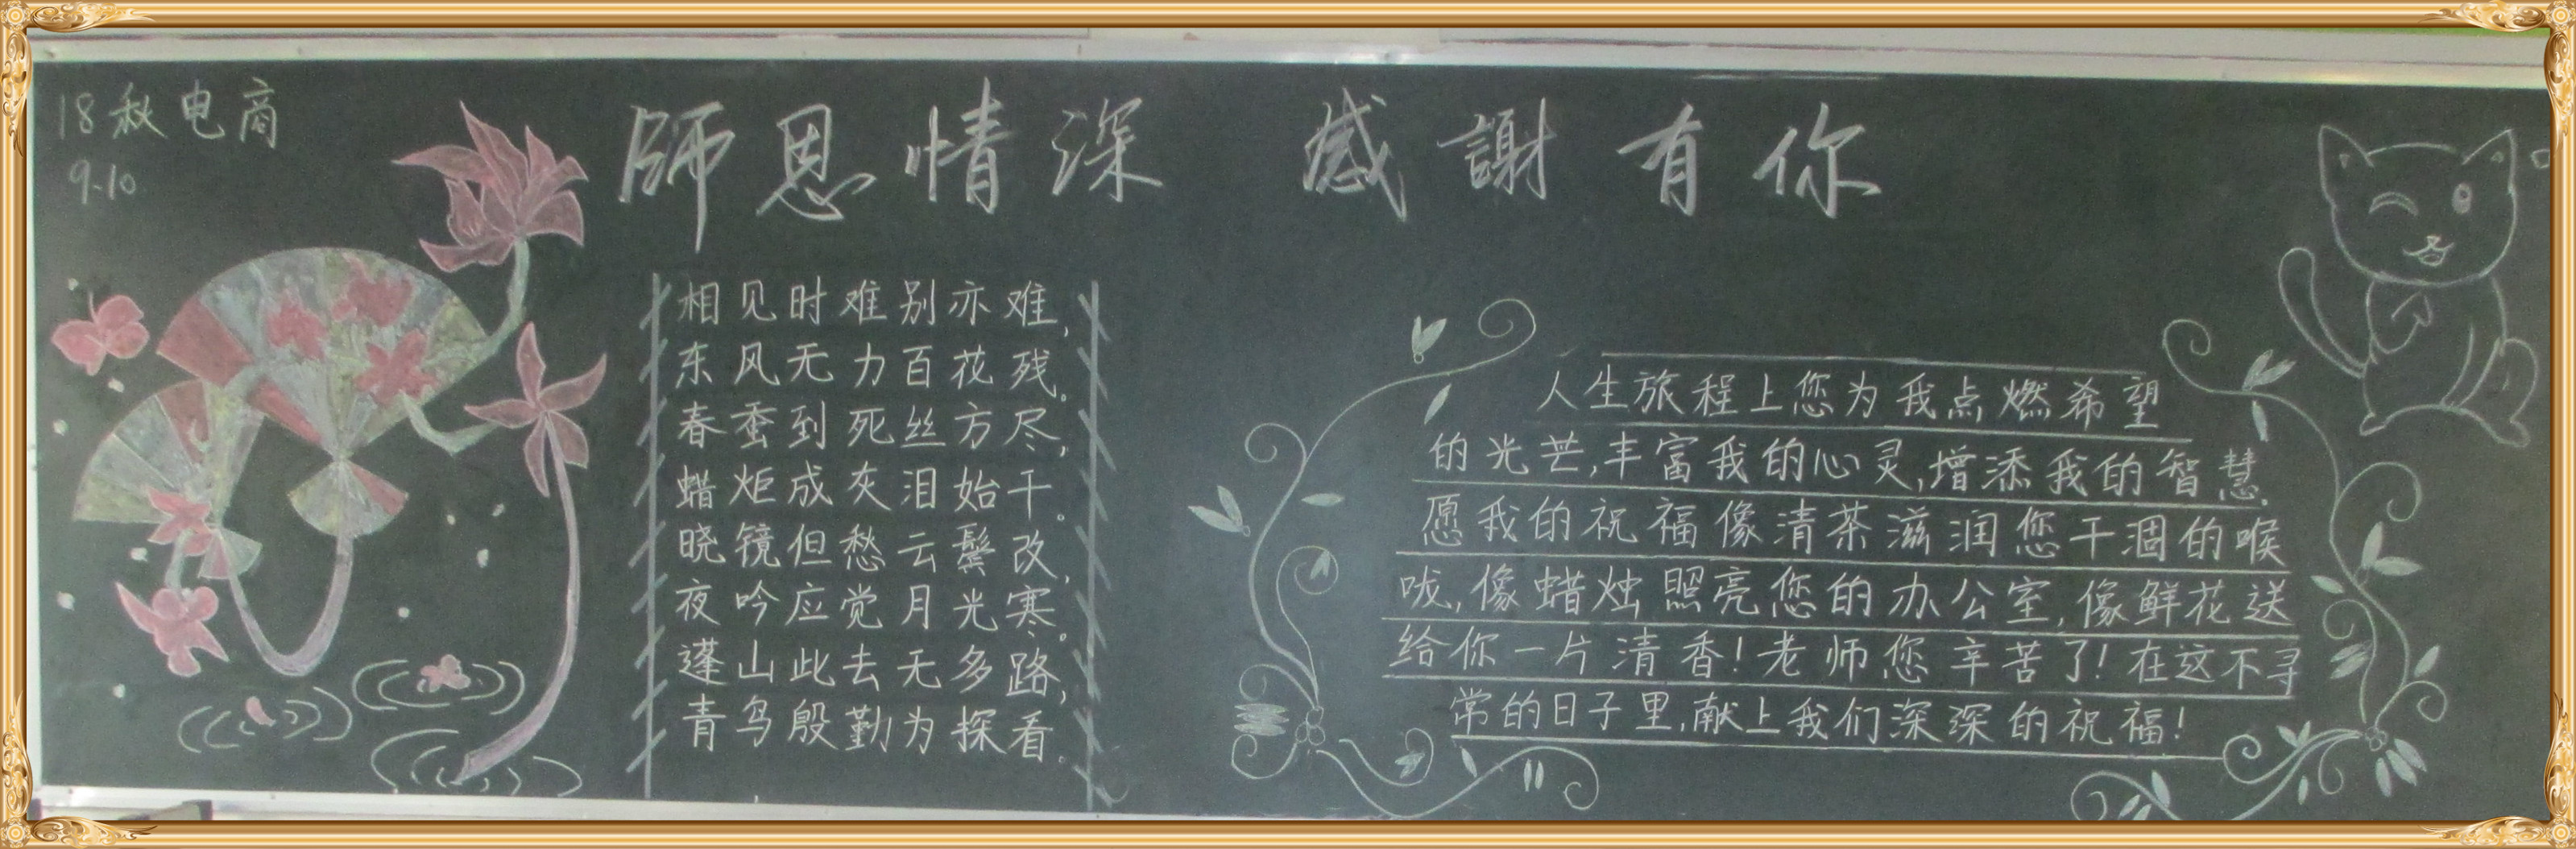 18秋电商
9-10
师恩情深 感謝有你
相见时难别亦难,
东风无力百花残。
春蚕到死丝方尽,
蜡炬成灰泪始干。
晓镜但愁云鬓改,
夜吟应觉月光寒。
蓬山此去无多路,
青鸟殷勤为探看.
人生旅程上您为我点燃希望
的光芒,丰富我的心灵,增添我的智慧.
愿我的祝福像清茶滋润您干涸的喉
咙,像蜡烛照亮您的办公室,像鲜花送
给你一片清香!老师您辛苦了!在这不寻
常的日子里,献上我们深深的祝福!